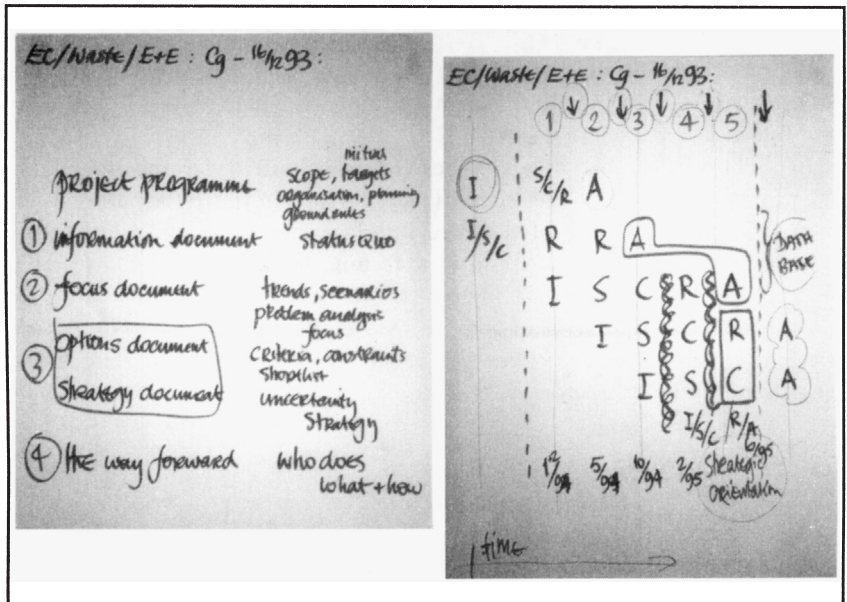 EC/Waste/E+E : Cg - 16/12 93:
project programme
scope, targets
organisation, planning
ground rules
① information document
status quo
② focus document
trends, scenarios
problem analysis
focus
③
options document
criteria, constraints
shortlist
strategy document
uncertainty
strategy
④ the way forward
who does
what + how
EC/Waste/E+E : Cg - 16/12 93:
1 2 3 4 5
I S/C/R A
I/S/C R R A
DATA
BASE
I S C R A
I S C R A
I S C A
I/S/C R/A
6/95
12/94 5/94 10/94 2/95 strategic
orientation
time